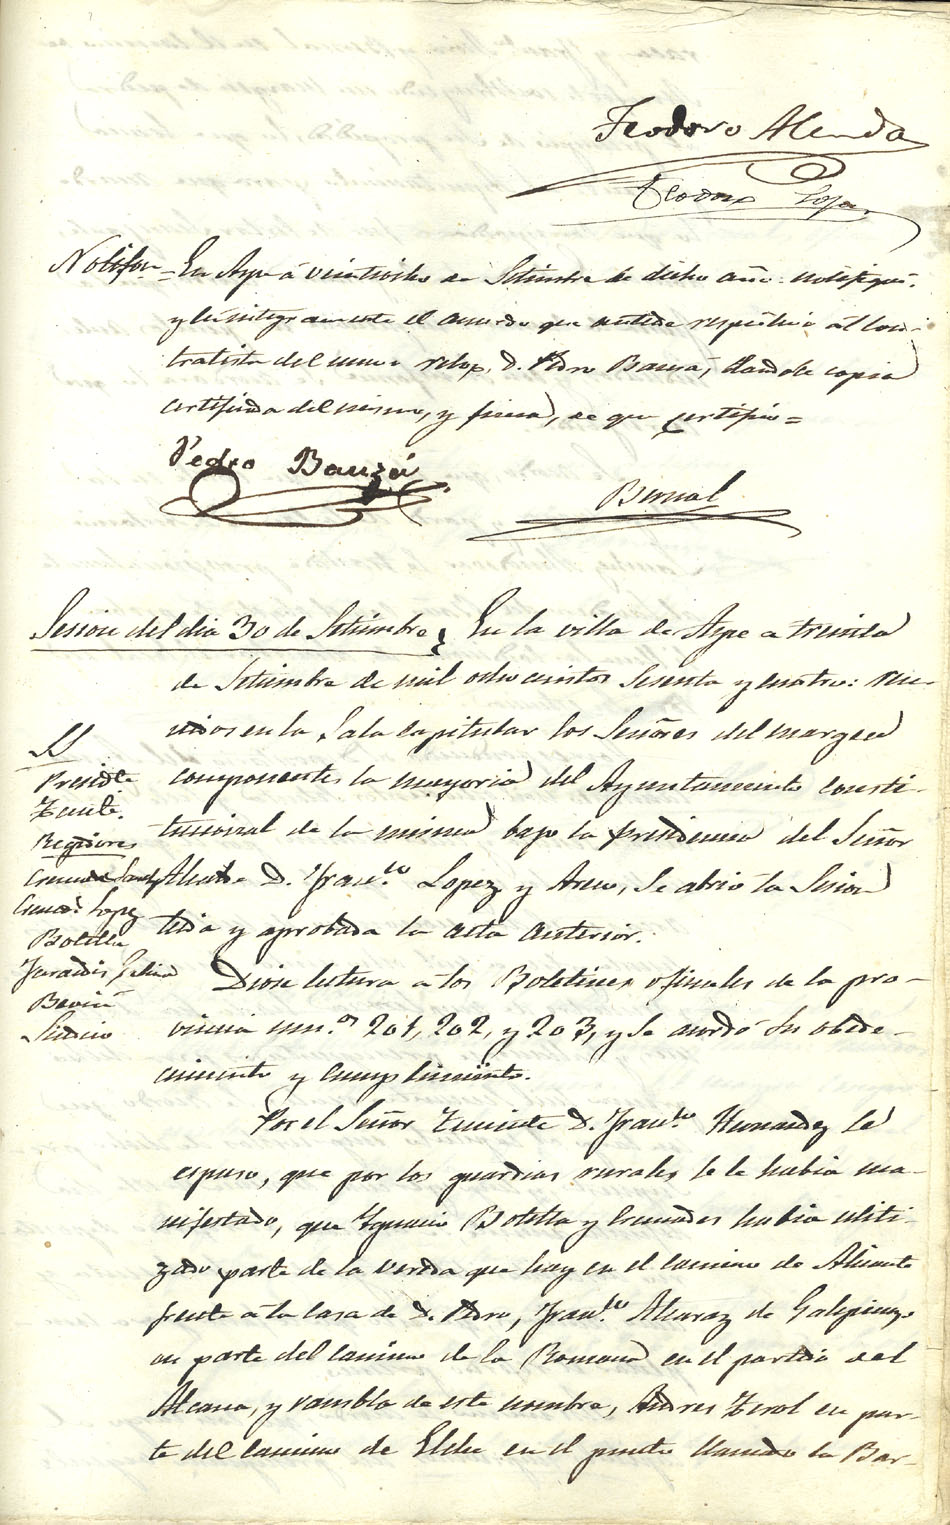 Teodoro Alenda
Teodoro Lopez
Notifon = En Aspe á veintiocho de Setiembre de dicho año: notifiqué,
y leí integramente el acuerdo que antecede respectivo al con-
tratista del nuevo relox, D. Pedro Bauzá, dandole copia
certificada del mismo, y firma, de que certifico =
Pedro Bauzá
Bernal
Sesion del dia 30 de Setiembre } En la villa de Aspe a treinta
de Setiembre de mil ochocientos sesenta y cuatro: reu-
nidos en la Sala Capitular los Señores del margen
componentes la mayoria del Ayuntamiento consti-
tucional de la misma bajo la Presidencia del Señor
Alcalde D. Franco Lopez y Aseo, Se abrio la Sesion
leida y aprobada la acta anterior.
SS
Presidte
Tente.
Regidores
Cremades Sanchez
Cremads Lopez
Botella
Galinso
Beviá
Sindico
Diose lectura á los Boletines oficiales de la pro-
vincia num.os 201, 202, y 203, y se acordó Su obede-
cimiento y cumplimiento.
Por el Señor Teniente D. Franco Hernandez Se
espuso, que por los guardias rurales se le habia ma-
nifestado, que Ygnacio Botella y Cremades habia utili-
zado parte de la vereda que hay en el camino de Alicante
frente á la casa de D. Pedro, Franco Alcaraz de Galipienzo
en parte del camino de la Romana en el partido del
Alcana, y rambla de este nombre, Andres Terol en par-
te del camino de Elche en el punto llamado la Bar-